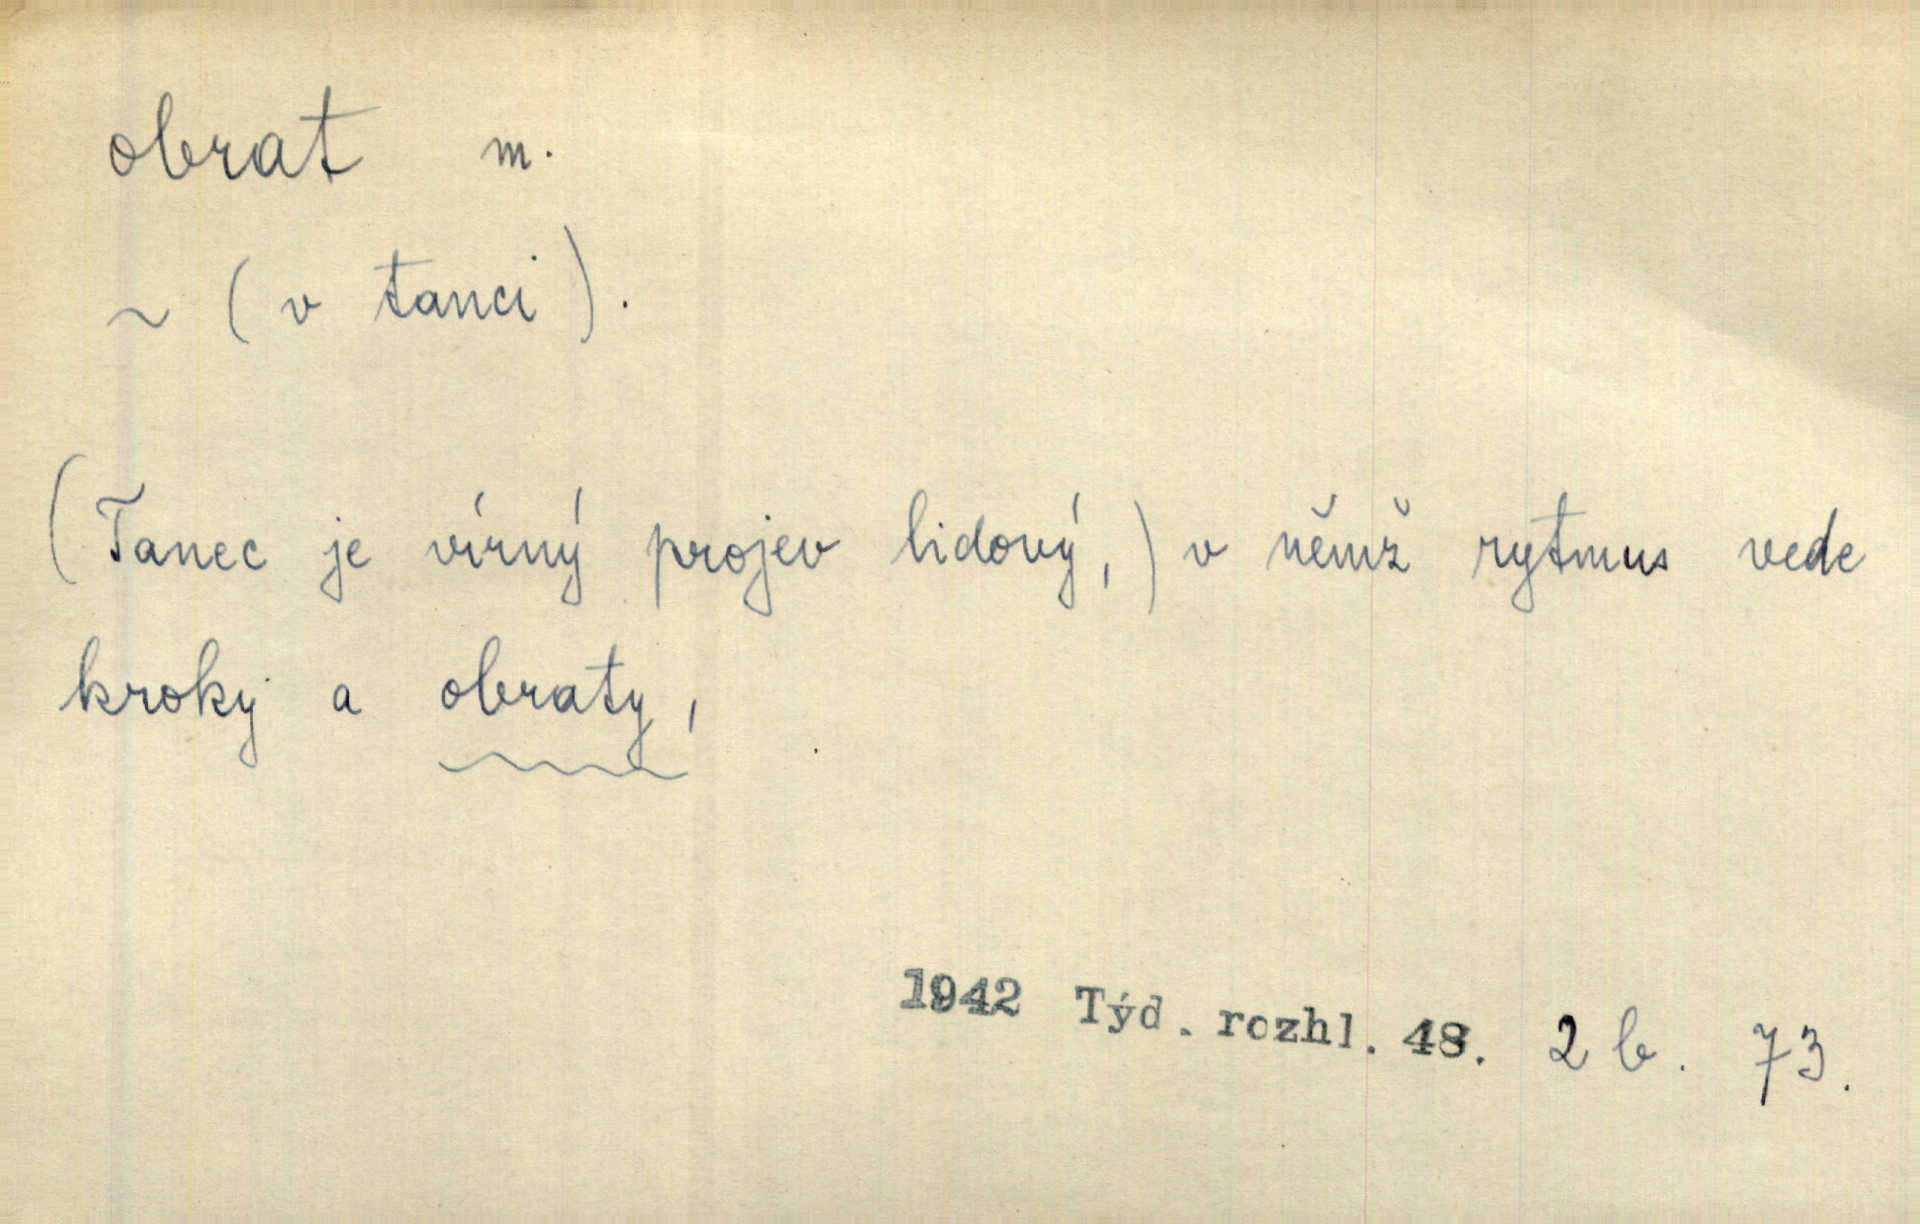 obrat m.
~ (v tanci).
(Tanec je vírný projev lidový,) v němž rytmus vede
kroky a obraty,
1942 Týd. rozhl. 48. 2 b. 73.